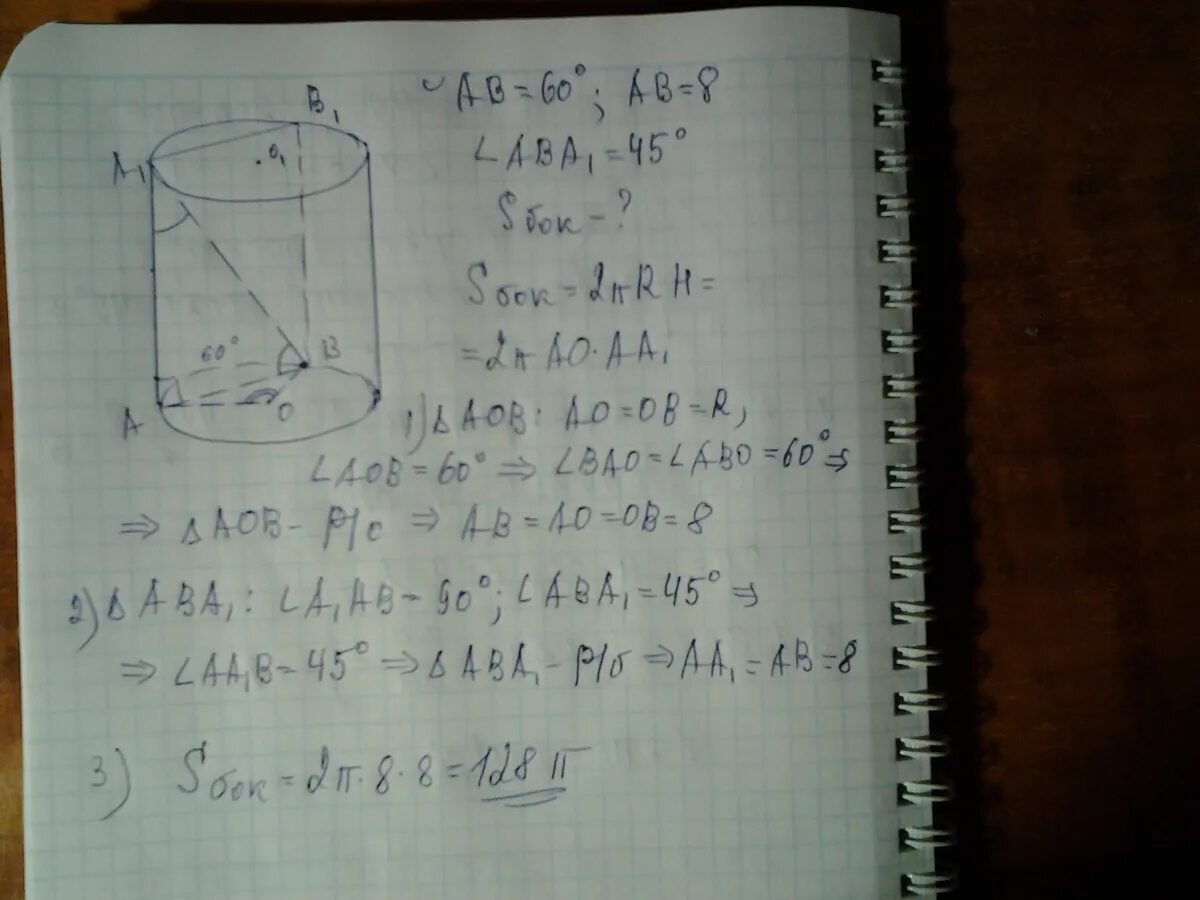 B₁
A₁
O₁
60°
B
A
O
◡AB = 60°; AB = 8
∠ABA₁ = 45°
Sбок – ?
Sбок = 2πRH =
= 2π AO·AA₁
1) ΔAOB: AO = OB = R,
∠AOB = 60° ⇒ ∠BAO = ∠ABO = 60° ⇒
⇒ ΔAOB – р/с ⇒ AB = AO = OB = 8
2) ΔABA₁: ∠A₁AB = 90°; ∠ABA₁ = 45° ⇒
⇒ ∠AA₁B = 45° ⇒ ΔABA₁ – р/б ⇒ AA₁ = AB = 8
3) Sбок = 2π·8·8 = 128π